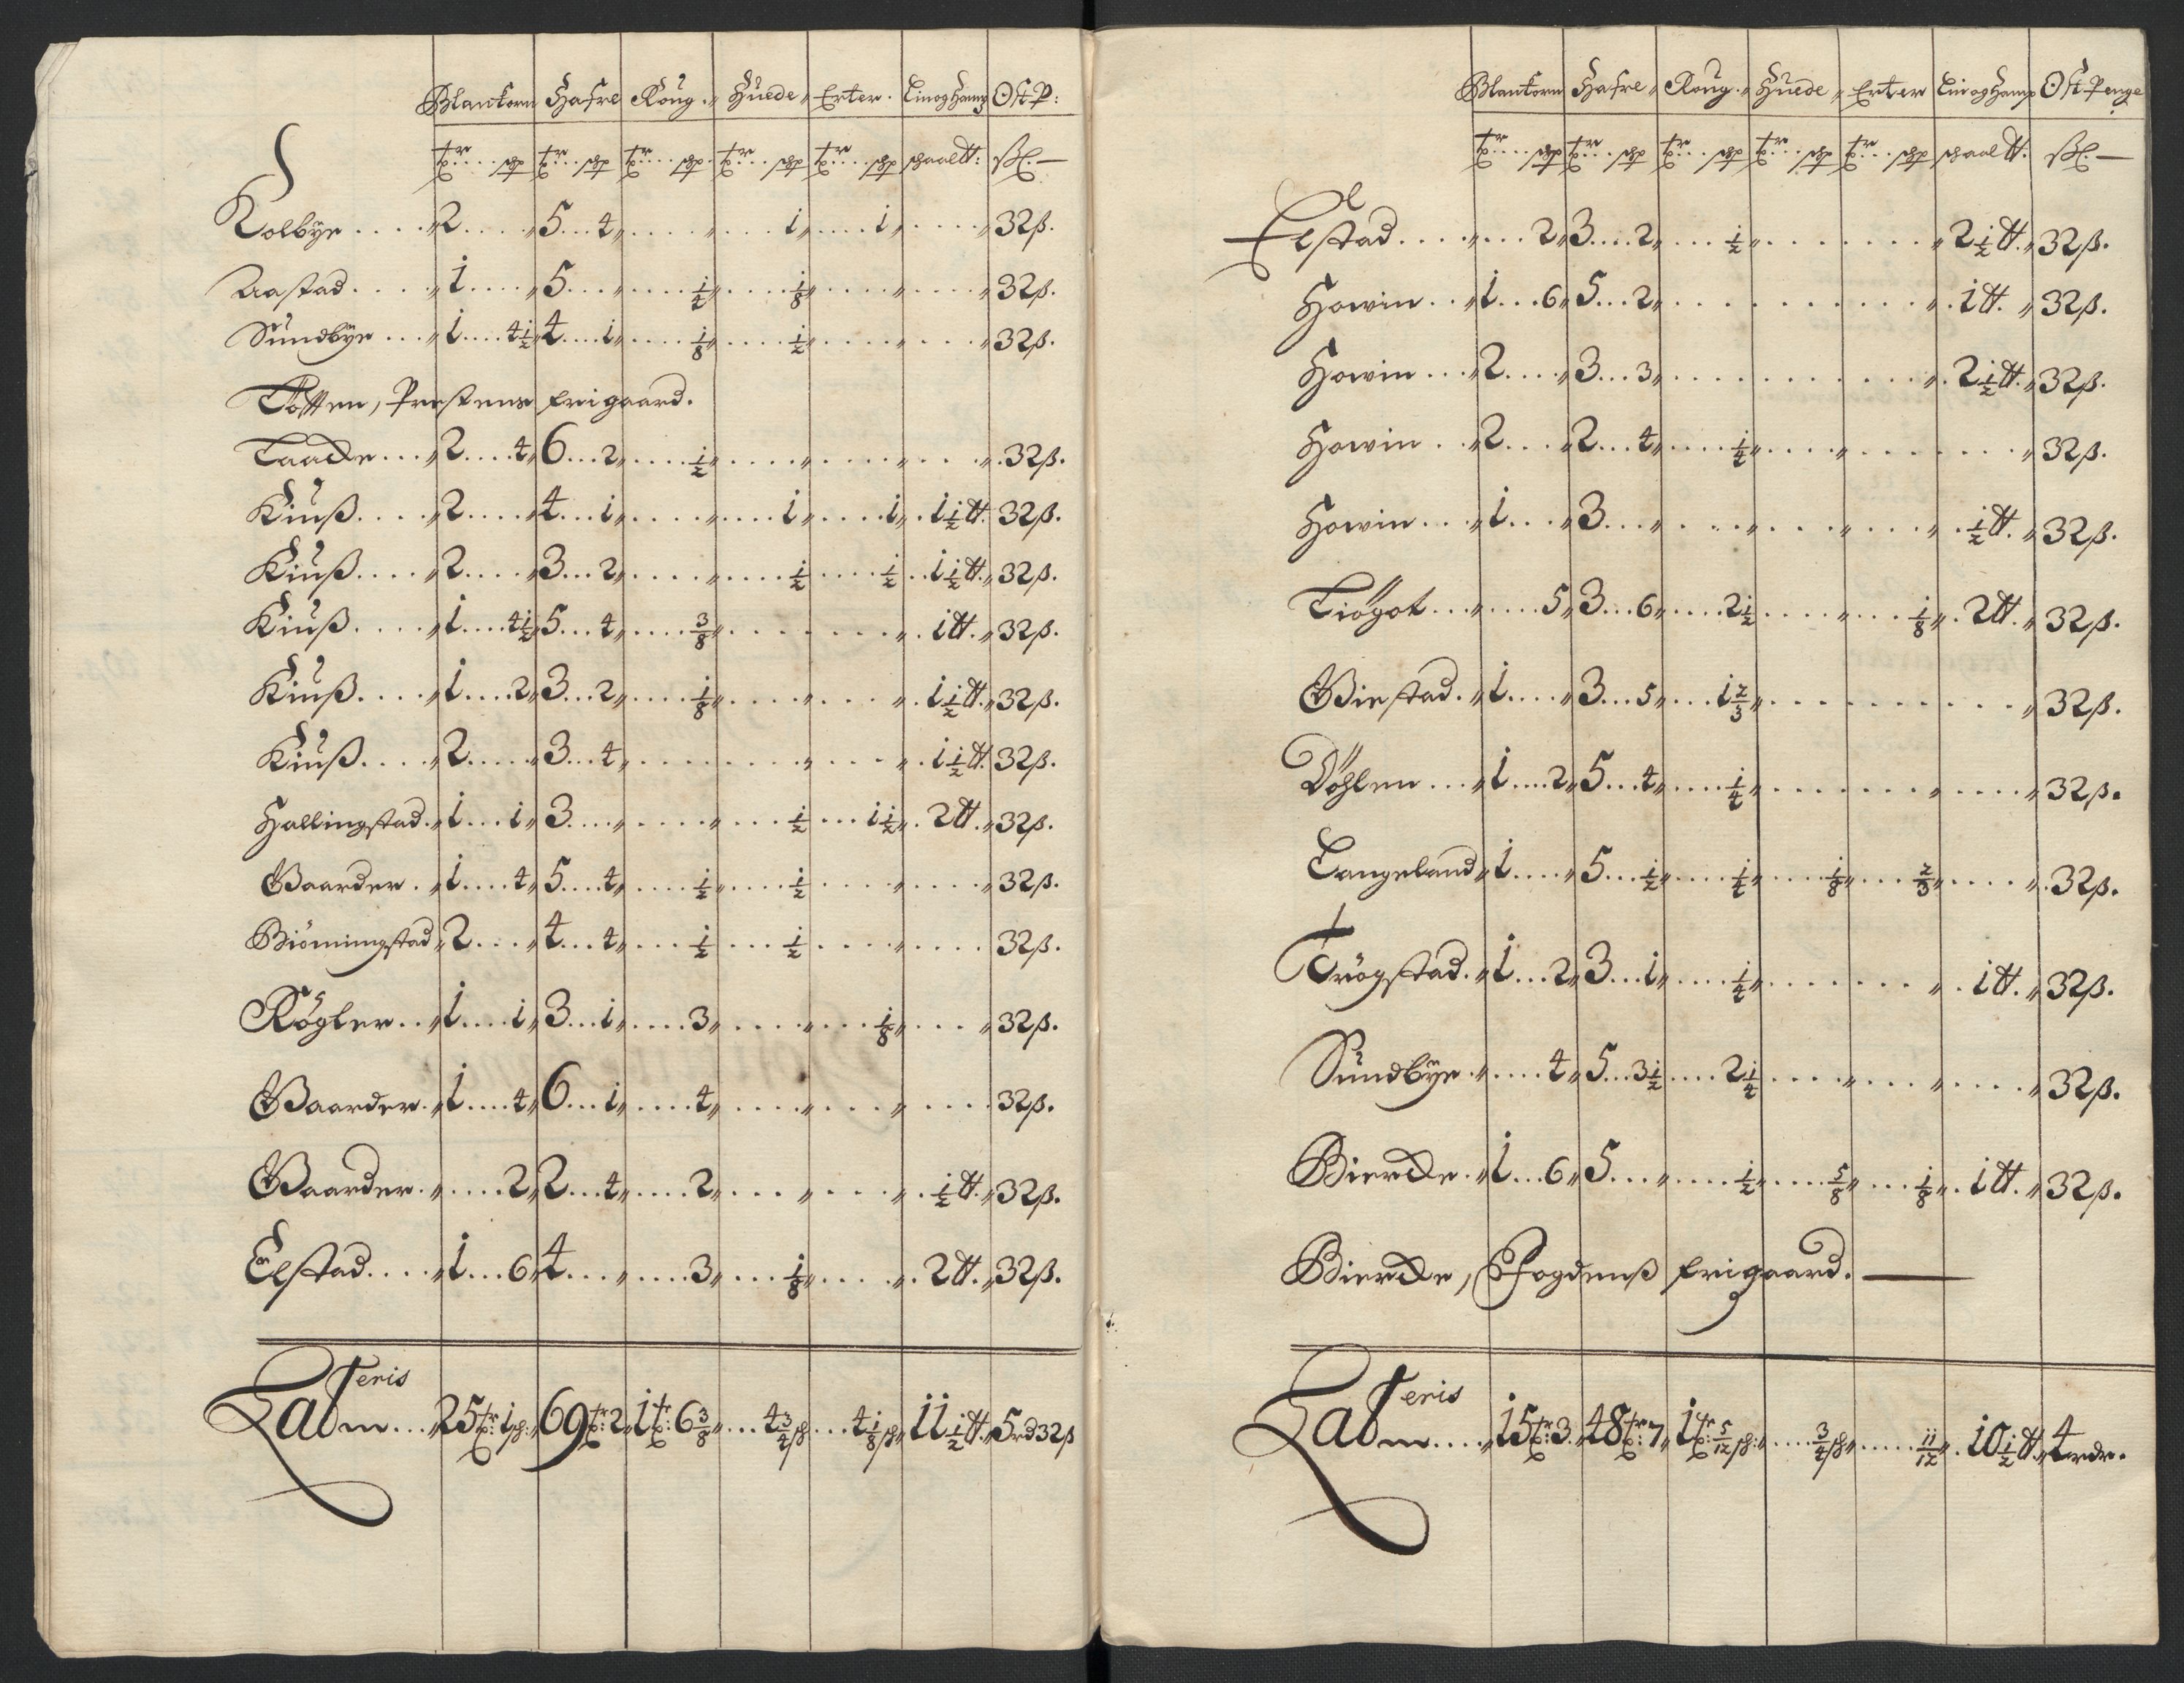 Blankorn Hafre Roug. Huede Erter. Lin og Hamp Ost P:
tr... shp tr... shp tr... shp tr... shp tr... shp schaal ℔: ßl.—
Kolbye .... 2.... 5... 4 .... 1 .... 1 .... 32ß.
Aastad .... 1.... 5.... 1/4 .... 1/8 .... 32ß.
Sundbye ... 1.... 4½ 4.... 1 .... 1/8 .... ½ .... 32ß.
Totten, Prestens frigaard.
Taade... 2.... 4 6... 2 .... ½ .... 32ß.
Kiuß.... 2.... 4... 1 .... 1 .... 1 .. 1½ ℔. 32ß.
Kiuß.... 2.... 3... 2 .... ½ .... ½ .. 1½ ℔. 32ß.
Kiuß.... 1.... 4½ 5... 4 .... 3/8 .... 1 ℔. 32ß.
Kiuß.... 1.... 2 3... 2 .... 1/8 .... 1½ ℔. 32ß.
Kiuß.... 2.... 3... 4 .... 1½ ℔. 32ß.
Hallingstad. 1... 1 3.... ½ ... 1½ . 2 ℔. 32ß.
Gaarder. 1.... 4 5.... 4 .... ½ .... ½ .... 32ß.
Biörningstad 2.... 4... 4 .... ½ ... ½ .... 32ß.
Rögler.. 1.... 1 3... 1 .... 3 .... 1/8 .... 32ß.
Gaarder. 1.... 4 6... 1 .... 4 .... 32ß.
Gaarder. .... 2 2... 4 .... 2 .... ½ ℔. 32ß.
Elstad.... 1... 6 4.... 3 ... 1/8 .... 2 ℔. 32ß.
Lateris
m... 25 tr: 1 sh: 69 tr: 2 1 tr: 6 3/8 ... 4 3/4 sh ... 4 1/8 sh 11½ ℔. 5 rd 32ß
Blankorn Hafre Roug. Huede Erter Lin og Hamp Ost Penge
tr... shp tr... shp tr... shp tr... shp tr... shp schaal ℔. ßl.—
Elstad.... .... 2 3.... 2 .... ½ .... 2½ ℔. 32ß.
Howin .. 1... 6 5... 2 .... 1 ℔. 32ß.
Howin ... 2.... 3... 3 .... 2½ ℔. 32ß.
Howin .. 2.... 2... 4 .... 1/4 .... 32ß.
Howin ... 1.... 3.... ½ ℔. 32ß.
Tiögot... .... 5 3... 6 .... 2½ .... 1/8 . 2 ℔. 32ß.
Giestad. 1.... 3... 5 ... 1 2/3 .... 32ß.
Döhlen ... 1.... 2 5... 4 .... 1/4 .... 32ß.
Langeland 1.... 5... ½ .... 1/4 .... 1/8 ... 2/3 .... 32ß.
Trögstad. 1... 2 3... 1 .... 1/4 .... 1 ℔. 32ß.
Sundbye .... 4 5... 3½ .... 2 1/4 .... 32ß.
Bierche. 1... 6 5.... ½ .... 5/8 ... 1/8 . 1 ℔. 32ß.
Bierche, Fogdenß frigaard.—
Lateris
m.... 15 tr: 3. 48 tr: 7 1 tr: 5/12 sh: .... 3/4 sh .... 11/12 . 10½ ℔. 4 rdr.